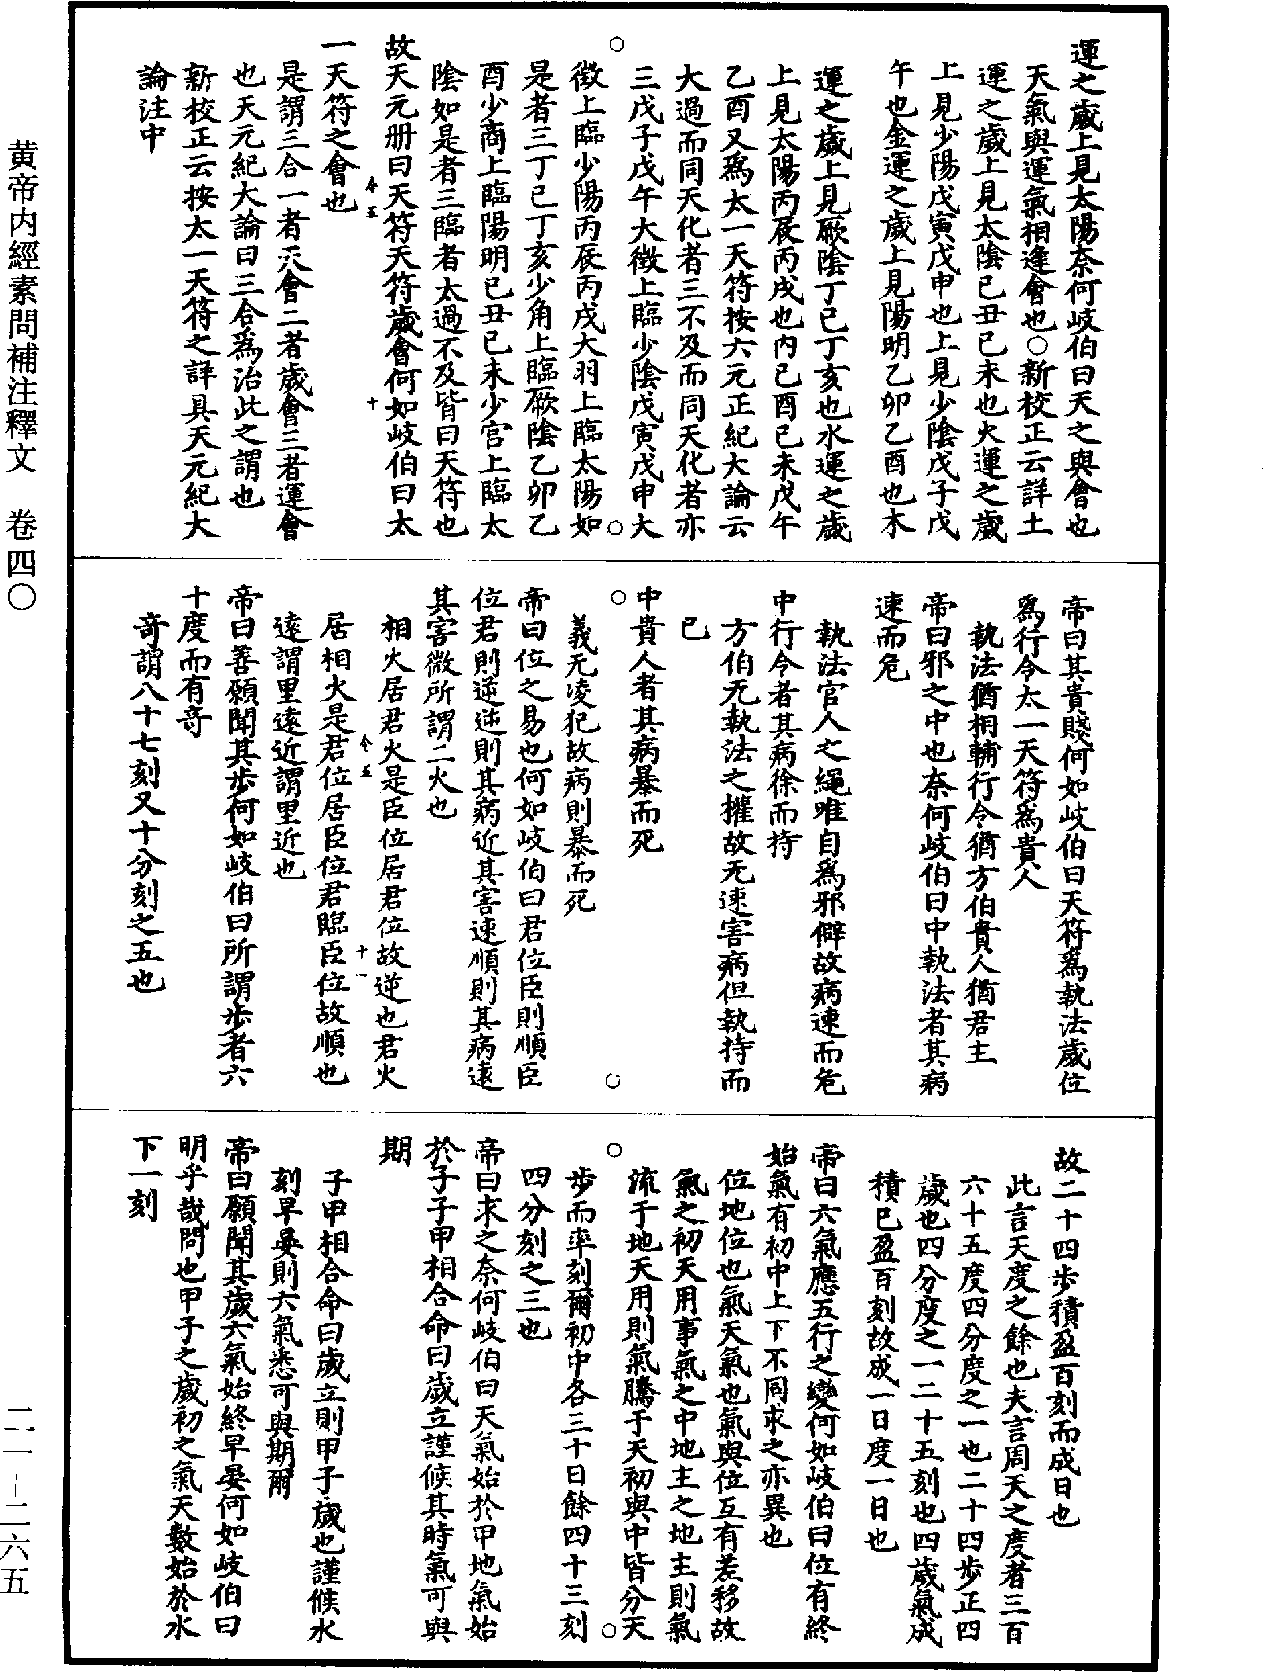 運之歲上見太陽奈何岐伯曰天之與會也
天氣與運氣相逢會也○新校正云詳土
運之歲上見太陰己丑己未也火運之歲
上見少陽戊寅戊申也上見少陰戊子戊
午也金運之歲上見陽明乙卯乙酉也木
運之歲上見厥陰丁巳丁亥也水運之歲
上見太陽丙辰丙戌也內己酉己未戊午
乙酉又爲太一天符按六元正紀大論云
大過而同天化者三不及而同天化者亦
三戊子戊午大徵上臨少陰戊寅戊申大
徵上臨少陽丙辰丙戌大羽上臨太陽如
是者三丁巳丁亥少角上臨厥陰乙卯乙
酉少商上臨陽明己丑己未少宮上臨太
陰如是者三臨者太過不及皆曰天符也
故天元册曰天符天符歲會何如岐伯曰太
一天符之會也
是謂三合一者天會二者歲會三者運會
也天元紀大論曰三合爲治此之謂也
新校正云按太一天符之詳具天元紀大
論注中
帝曰其貴賤何如岐伯曰天符爲執法歲位
爲行令太一天符爲貴人
執法猶相輔行令猶方伯貴人猶君主
帝曰邪之中也奈何岐伯曰中執法者其病
速而危
執法官人之繩唯自爲邪僻故病速而危
中行令者其病徐而持
方伯无執法之權故无速害病但執持而
已
中貴人者其病暴而死
義无凌犯故病則暴而死
帝曰位之易也何如岐伯曰君位臣則順臣
位君則逆逆則其病近其害速順則其病遠
其害微所謂二火也
相火居君火是臣位居君位故逆也君火
居相火是君位居臣位君臨臣位故順也
遠謂里遠近謂里近也
帝曰善願聞其步何如岐伯曰所謂步者六
十度而有奇
奇謂八十七刻又十分刻之五也
故二十四步積盈百刻而成日也
此言天度之餘也夫言周天之度者三百
六十五度四分度之一也二十四步正四
歲也四分度之一二十五刻也四歲氣成
積已盈百刻故成一日度一日也
帝曰六氣應五行之變何如岐伯曰位有終
始氣有初中上下不同求之亦異也
位地位也氣天氣也氣與位互有差移故
氣之初天用事氣之中地主之地主則氣
流于地天用則氣騰于天初與中皆分天
步而率刻爾初中各三十日餘四十三刻
四分刻之三也
帝曰求之奈何岐伯曰天氣始於甲地氣始
於子子甲相合命曰歲立謹候其時氣可與
期
子甲相合命曰歲立則甲子歲也謹候水
刻早晏則六氣悉可與期爾
帝曰願聞其歲六氣始終早晏何如岐伯曰
明乎哉問也甲子之歲初之氣天數始於水
下一刻
今五
十
今五
十一
黄帝内經素問補注釋文　卷四〇
二一-二六五